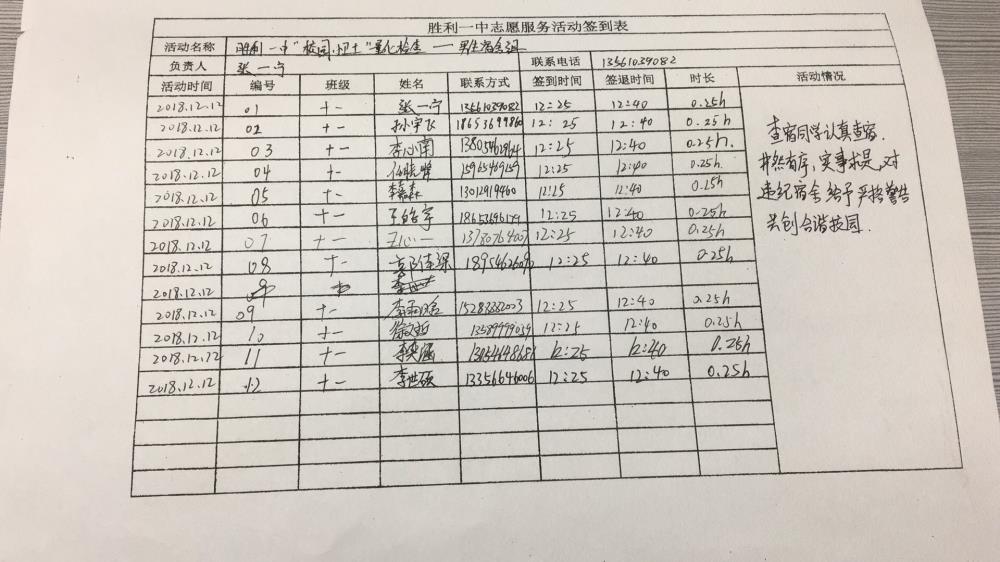 胜利一中志愿服务活动签到表
活动名称 胜利一中"校园卫士"量化检查——男生宿舍组
负责人 张一宁 联系电话 13561039082
活动时间 编号 班级 姓名 联系方式 签到时间 签退时间 时长 活动情况
2018.12.12 01 十一 张一宁 13561039082 12:25 12:40 0.25h
2018.12.12 02 十一 孙宇飞 18653699860 12:25 12:40 0.25h
2018.12.12 03 十一 李心南 13805462964 12:25 12:40 0.25h.
2018.12.12 04 十一 15965469159 12:25 12:40 0.25h
2018.12.12 05 十一 李嘉森 13012919460 12:25 12:40 0.25h
2018.12.12 06 十一 12:25 12:40 0.25h
2018.12.12 07 十一 王心一 12:25 12:40 0.25h
2018.12.12 08 十一 12:25 12:40 0.25h
2018.12.12
2018.12.12 09 十一 12:25 12:40 0.25h
2018.12.12 10 十一 徐文哲 13589999059 12:25 12:40 0.25h
2018.12.12 11 十一 李奕涵 12:25 12:40 0.25h
2018.12.12 12 十一 李世硕 13356646006 12:25 12:40 0.25h
查宿同学认真查宿.
井然有序,实事求是,对
违纪宿舍给予严格警告
共创合谐校园.